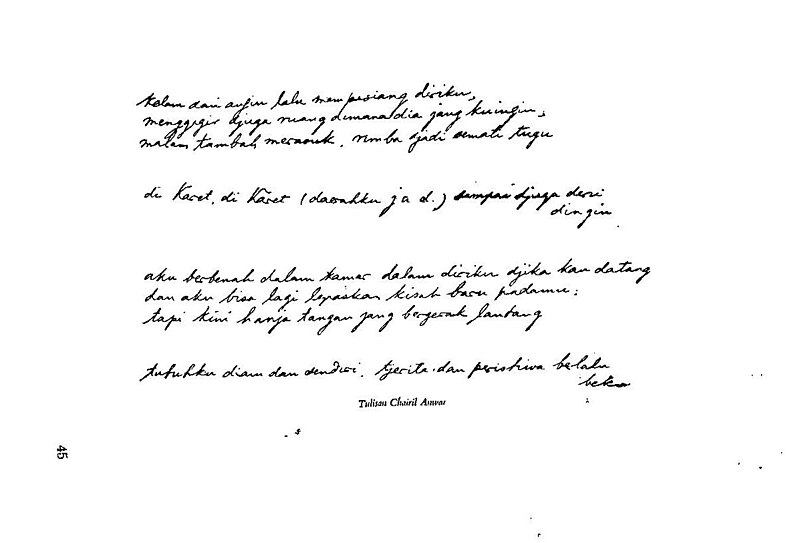 kelam dan angin lalu mempesiang diriku,
menggigir djuga ruang dimana dia jang kuingin,
malam tambah merasuk, rimba djadi semati tugu
di Karet, di Karet (daerahku j a d.) sampai djuga deru
dingin
aku berbenah dalam kamar dalam diriku djika kau datang
dan aku bisa lagi lepaskan kisah baru padamu;
tapi kini hanja tangan jang bergerak lantang
tubuhku diam dan sendiri. tjerita dan peristiwa berlalu
beku
Tulisan Chairil Anwar
45